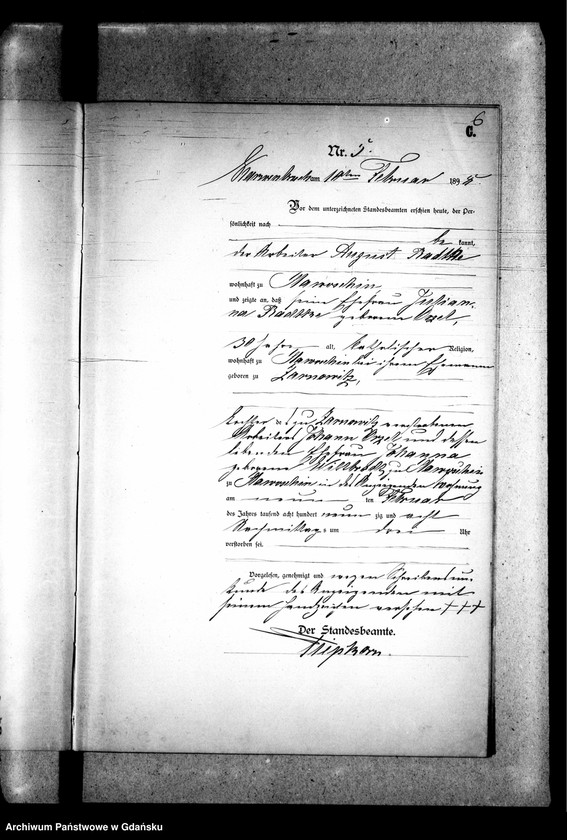 6
C.
Nr. 5.
am 10ten Februar 1898
Vor dem unterzeichneten Standesbeamten erschien heute, der Per-
sönlichkeit nach
be kannt,
der Arbeiter August Radtke
wohnhaft zu Naroschin
und zeigte an, daß seine Ehefrau Julian-
na Radtke geborene
30 Jahre alt, katholischer Religion,
wohnhaft zu bei ihrem Ehemanne
geboren zu Zarnowitz,
Tochter des zu Zarnowitz verstorbenen
Arbeiters Johann und dessen
lebenden Ehefrau Johanna
geborene zu
zu in des Anzeigenden Wohnung
am neun ten Februar
des Jahrs tausend acht hundert neun zig und acht
Nachmittags um drei Uhr
verstorben sei.
Vorgelesen, genehmigt und wegen Schreibensun-
kunde des Anzeigenden mit
seinen Handzeichen versehen +++
Der Standesbeamte.
Archiwum Państwowe w Gdańsku